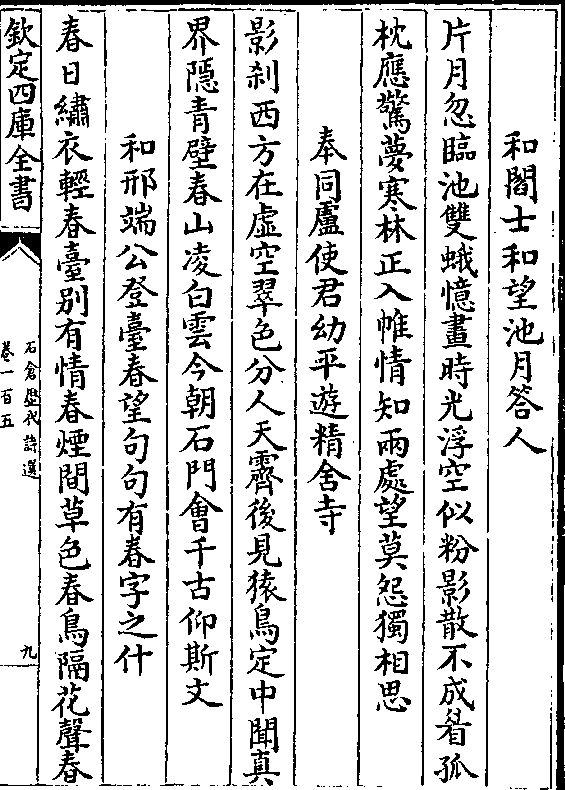 和閻士和望池月答人
片月忽臨池雙蛾憶畫時光浮空似粉影散不成眉孤
枕應驚夢寒林正入帷情知兩處望莫怨獨相思
奉同盧使君幼平遊精舍寺
影刹西方在虚空翠色分人天霽後見猿鳥定中聞真
界隱青壁春山凌白雲今朝石門會千古仰斯文
和邢端公登臺春望句句有春字之什
春日繡衣輕春臺别有情春煙間草色春鳥隔花聲春
欽定四庫全書
石倉歷代詩選
卷一百五
九